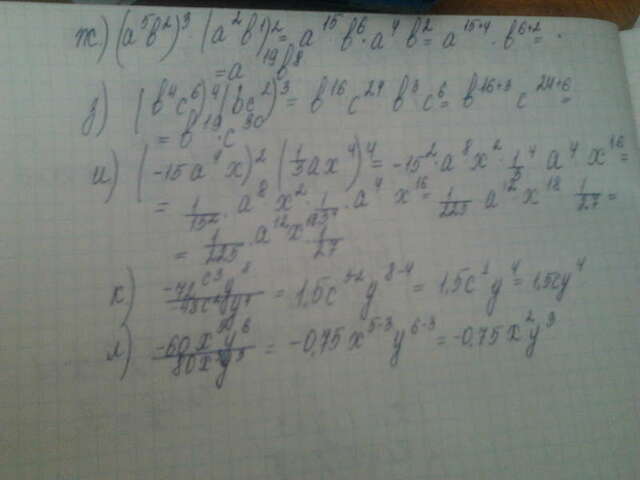 ж) (a⁵b²)³ · (a²b¹)² = a¹⁵b⁶ · a⁴b² = a¹⁵⁺⁴ · b⁶⁺² =
= a¹⁹b⁸
з) (b⁴c⁶)⁴ (bc²)³ = b¹⁶c²⁴ b³c⁶ = b¹⁶⁺³ c²⁴⁺⁶ =
= b¹⁹ · c³⁰
и) (-15a⁴x)² (1/3ax⁴)⁴ = -15² · a⁸x² · 1/3⁴ a⁴x¹⁶ =
= 1/15² · a⁸x² · 1/3⁴ · a⁴x¹⁶ = 1/225 a¹²x¹⁸ 1/27 =
= 1/225 · a¹²x¹⁸ 1/27
к) = 1,5c³⁻²y⁸⁻⁴ = 1,5c¹y⁴ = 1,5cy⁴
л) = -0,75x⁵⁻³y⁶⁻³ = -0,75x²y³